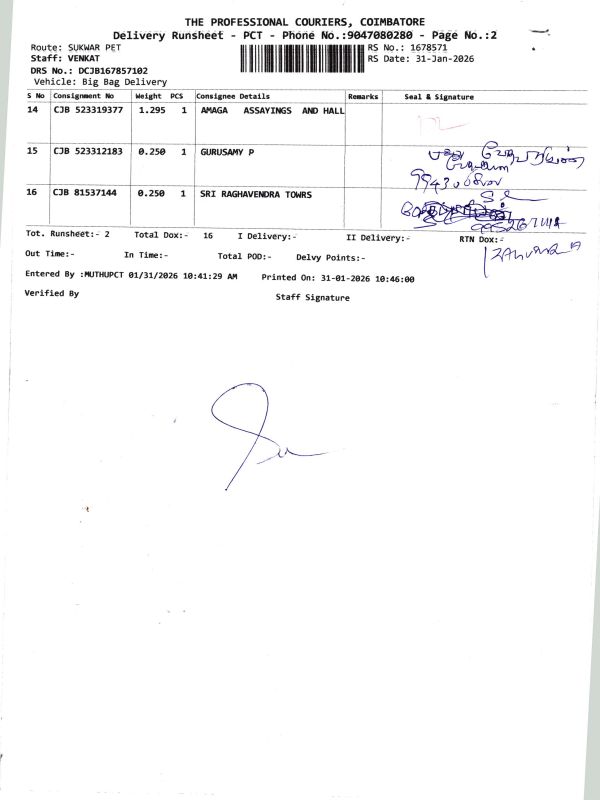 THE PROFESSIONAL COURIERS, COIMBATORE
Delivery Runsheet - PCT - Phone No.:9047080280 - Page No.:2
Route: SUKWAR PET RS No.: 1678571
Staff: VENKAT RS Date: 31-Jan-2026
DRS No.: DCJB167857102
Vehicle: Big Bag Delivery
S No Consignment No Weight PCS Consignee Details Remarks Seal & Signature
14 CJB 523319377 1.295 1 AMAGA ASSAYINGS AND HALL
15 CJB 523312183 0.250 1 GURUSAMY P
16 CJB 81537144 0.250 1 SRI RAGHAVENDRA TOWRS
Tot. Runsheet:- 2 Total Dox:- 16 I Delivery:- II Delivery:- RTN Dox:-
Out Time:- In Time:- Total POD:- Delvy Points:-
Entered By :MUTHUPCT 01/31/2026 10:41:29 AM Printed On: 31-01-2026 10:46:00
Verified By Staff Signature